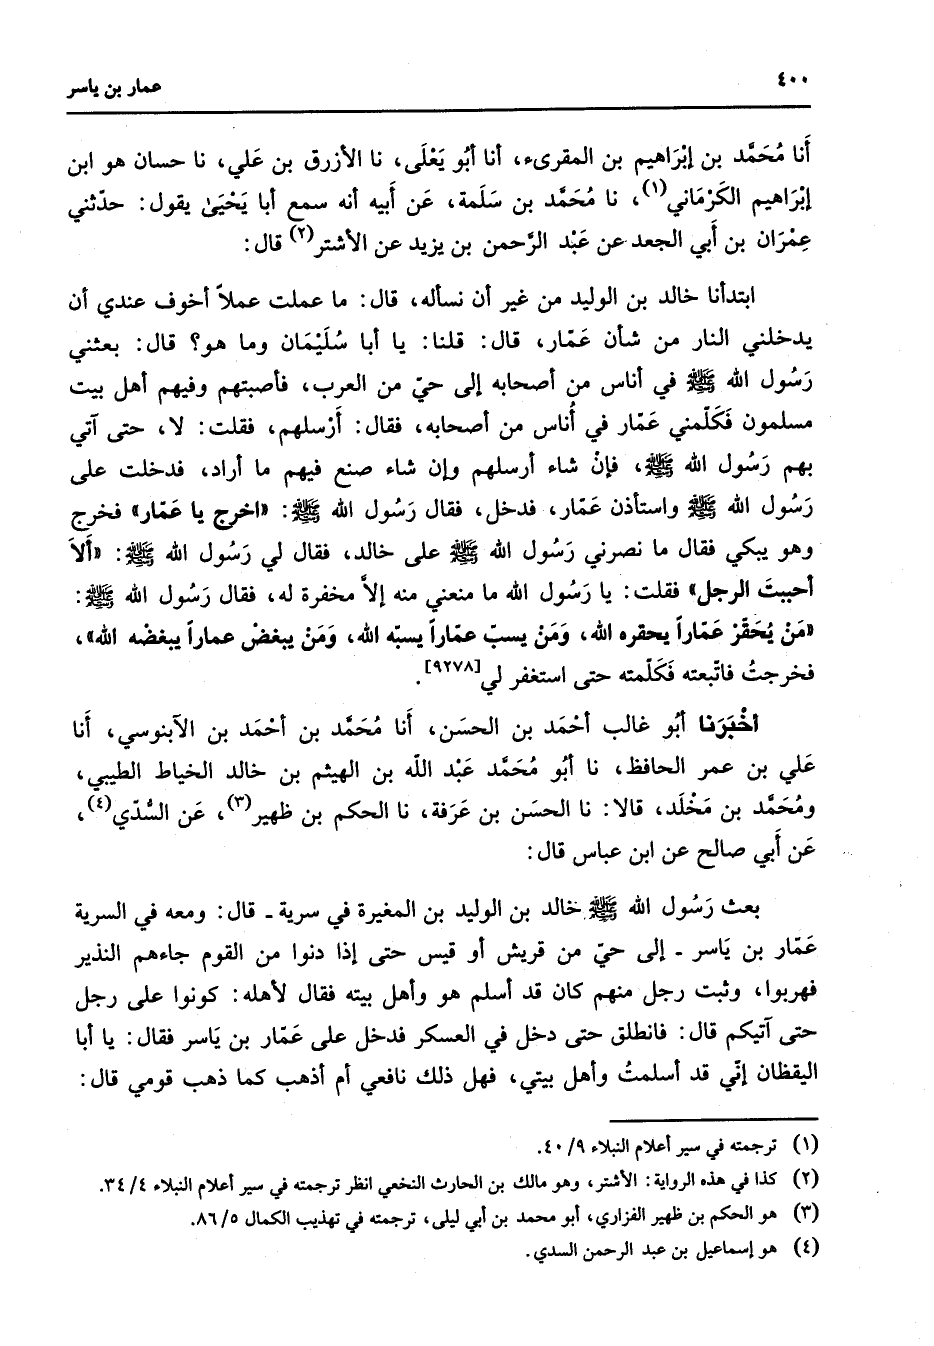 ٤٠٠ عمار بن ياسر
أَنا مُحَمَّد بن إبْرَاهيم بن المقرىء، أنا أبُو يَعْلَى، نا الأزرق بن عَلي، نا حسان هو ابن
إبْرَاهيم الكَرْمَاني(١)، نا مُحَمَّد بن سَلَمة، عَن أَبيه أنه سمع أبا يَحْيَىٰ يقول: حدّثني
عِمْرَان بن أَبي الجعد عن عَبْد الرَّحمن بن يزيد عن الأشتر(٢) قال:
ابتدأنا خالد بن الوليد من غير أن نسأله، قال: ما عملت عملاً أخوف عندي أن
يدخلني النار من شأن عَمّار، قال: قلنا: يا أبا سُلَيْمَان وما هو؟ قال: بعثني
رَسُول الله ﷺ في أناس من أصحابه إلى حيّ من العرب، فأصبتهم وفيهم أهل بيت
مسلمون فَكَلّمني عَمّار في أُناس من أصحابه، فقال: أَرْسلهم، فقلت: لا، حتى آتي
بهم رَسُول الله ﷺ، فإنْ شاء أرسلهم وإن شاء صنع فيهم ما أراد، فدخلت على
رَسُول الله ﷺ واستأذن عَمّار، فدخل، فقال رَسُول الله ﷺ: «اخرج يا عَمّار» فخرج
وهو يبكي فقال ما نصرني رَسُول الله ﷺ على خالد، فقال لي رَسُول الله ﷺ: «أَلاَ
أجبتَ الرجل» فقلت: يا رَسُول الله ما منعني منه إلاَّ مخفرة له، فقال رَسُول الله ﷺ:
«مَنْ يُحَقّرْ عَمّاراً يحقره الله، وَمَنْ يسبّ عمّاراً يسبّه الله، وَمَنْ يبغضْ عماراً يبغضه الله»،
فخرجتُ فاتّبعته فَكَلّمته حتى استغفر لي[٩٢٧٨].
أخْبَرَنا أبُو غالب أحْمَد بن الحسَن، أَنا مُحَمَّد بن أحْمَد بن الآبنوسي، أَنا
عَلي بن عمر الحافظ، نا أبُو مُحَمَّد عَبْد اللّه بن الهيثم بن خالد الخياط الطيبي،
ومُحَمَّد بن مَخْلَد، قالا: نا الحسَن بن عَرَفة، نا الحكم بن ظهير(٣)، عَن السُّدّي(٤)،
عَن أَبي صالح عن ابن عباس قال:
بعث رَسُول الله ﷺ خالد بن الوليد بن المغيرة في سرية ـ قال: ومعه في السرية
عَمّار بن يَاسر ـ إلى حيّ من قريش أو قيس حتى إذا دنوا من القوم جاءهم النذير
فهربوا، وثبت رجل منهم كان قد أسلم هو وأهل بيته فقال لأهله: كونوا على رجل
حتى آتيكم قال: فانطلق حتى دخل في العسكر فدخل على عَمّار بن يَاسر فقال: يا أبا
اليقظان إنّي قد أسلمتُ وأهل بيتي، فهل ذلك نافعي أم أذهب كما ذهب قومي قال:
(١) ترجمته في سير أعلام النبلاء ٩/ ٤٠.
(٢) كذا في هذه الرواية: الأشتر، وهو مالك بن الحارث النخعي انظر ترجمته في سير أعلام النبلاء ٤/ ٣٤.
(٣) هو الحكم بن ظهير الفزاري، أبو محمد بن أبي ليلى، ترجمته في تهذيب الكمال ٥/ ٨٦.
(٤) هو إسماعيل بن عبد الرحمن السدي.